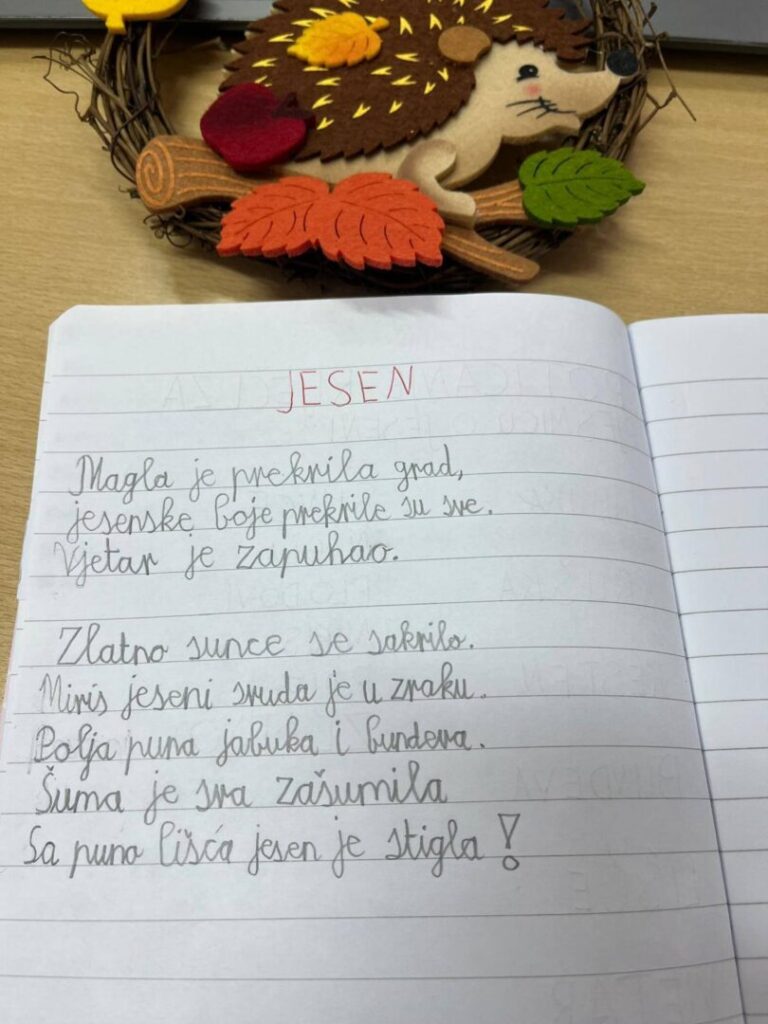 JESEN
Magla je prekrila grad,
jesenske boje prekrile su sve.
Vjetar je zapuhao.
Zlatno sunce se sakrilo.
Miris jeseni svuda je u zraku.
Polja puna jabuka i bundeva.
Šuma je sva zašumila
Sa puno lišća jesen je stigla!